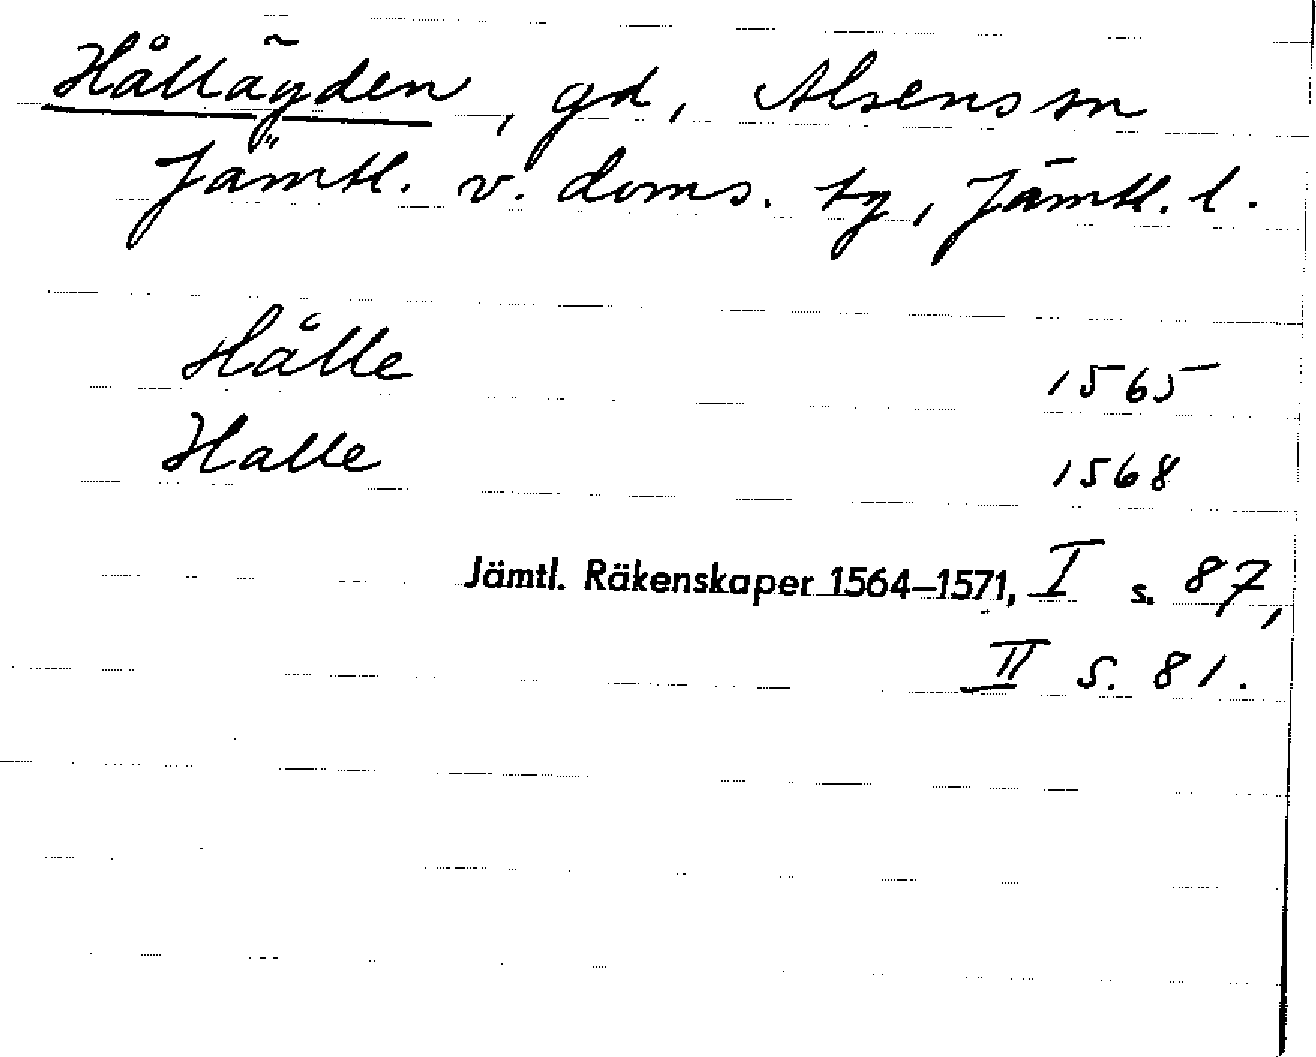 Hållägden, gd, Alsens sn
Jämtl. v. doms. tg, Jämtl. l.
Hålle 1565
Halle 1568
Jämtl. Räkenskaper 1564–1571, I s. 87,
II s. 81.